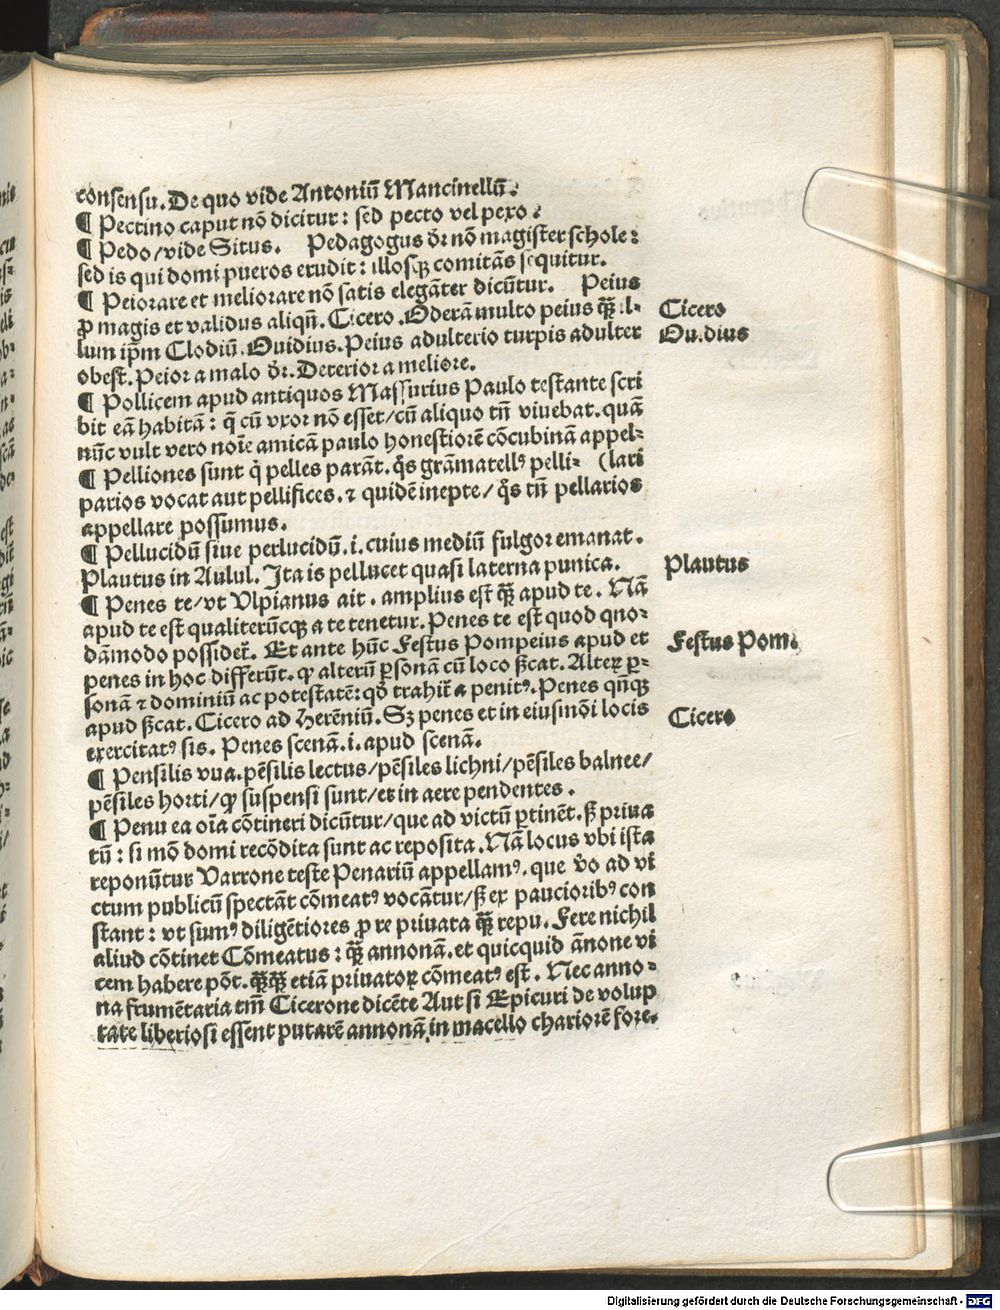 consensu. De quo vide Antoniū Mancinellū.
¶ Pectino caput nō dicitur: sed pecto vel pexo.
¶ Pedo/vide Situs. Pedagogus dr̄ nō magister schole:
sed is qui domi pueros erudit: illosq̃ comitās sequitur.
¶ Peiorare et meliorare nō satis elegāter dicūtur. Peius
ꝓ magis et validus aliqñ. Cicero. Oderā multo peius q̃ȝ il-
lum ip̄m Clodiū. Ouidius. Peius adulterio turpis adulter
obest. Peior a malo dr̄. Deterior a meliore.
¶ Pollicem apud antiquos Massurius Paulo testante scri
bit eā habitā: q̄ cū vxor nō esset/cū aliquo tñ viuebat. quā
nūc vult vero noīe amicā paulo honestiorē cōcubinā appel-
¶ Pelliones sunt q̇ pelles parāt. q̇s grāmatellꝰ pelli- (lari
parios vocat aut pellifices. ⁊ quidē inepte/ q̇s tñ pellarios
appellare possumus.
¶ Pellucidū siue perlucidū .i. cuius mediū fulgor emanat.
Plautus in Aulul. Ita is pellucet quasi laterna punica.
¶ Penes te/vt Vlpianus ait. amplius est q̃ȝ apud te. Nā
apud te est qualiterūcqȝ a te tenetur. Penes te est quod quo-
dāmodo possidet̄. Et ante hūc Festus Pompeius apud et
penes in hoc differūt. qꝫ alterū ꝑsonā cū loco ß̄cat. Alteꝝ ꝑ-
sonā ⁊ dominiū ac potestatē: qđ trahit̄ a penitꝰ. Penes qñqȝ
apud ß̄cat. Cicero ad Herēniū. Sȝ penes et in eiusmōi locis
exercitatꝰ sis. Penes scenā .i. apud scenā.
¶ Pensilis vua. pēsilis lectus/pēsiles lichni/pēsiles balnee/
pēsiles horti/ qꝫ suspensi sunt/et in aere pendentes.
¶ Penu ea oīa cōtineri dicūtur/que ad victū ꝑtinēt. ß priua
tū: si mō domi recōdita sunt ac reposita. Nā locus vbi ista
reponūtur Varrone teste Penariū appellamꝰ. que v̇o ad vi
ctum publicū spectāt cōmeatꝰ vocātur/ß ex paucioribꝰ con
stant: vt sumꝰ diligētiores ꝓ re priuata q̃ȝ repu. Fere nichil
aliud cōtinet Cōmeatus: q̃ȝ annonā. et quicquid ānone vi
cem habere pōt. q̃ȝq̃ȝ etiā priuatoꝝ cōmeatꝰ est. Nec anno-
na frumētaria tm̄ Cicerone dicēte Aut si Epicuri de volup
tate liberiosi essent putarē annonā in macello chariorē fore.
Cicero
Ou.dius
Plautus
Festus Pom.
Cicero
Digitalisierung gefördert durch die Deutsche Forschungsgemeinschaft - DFG